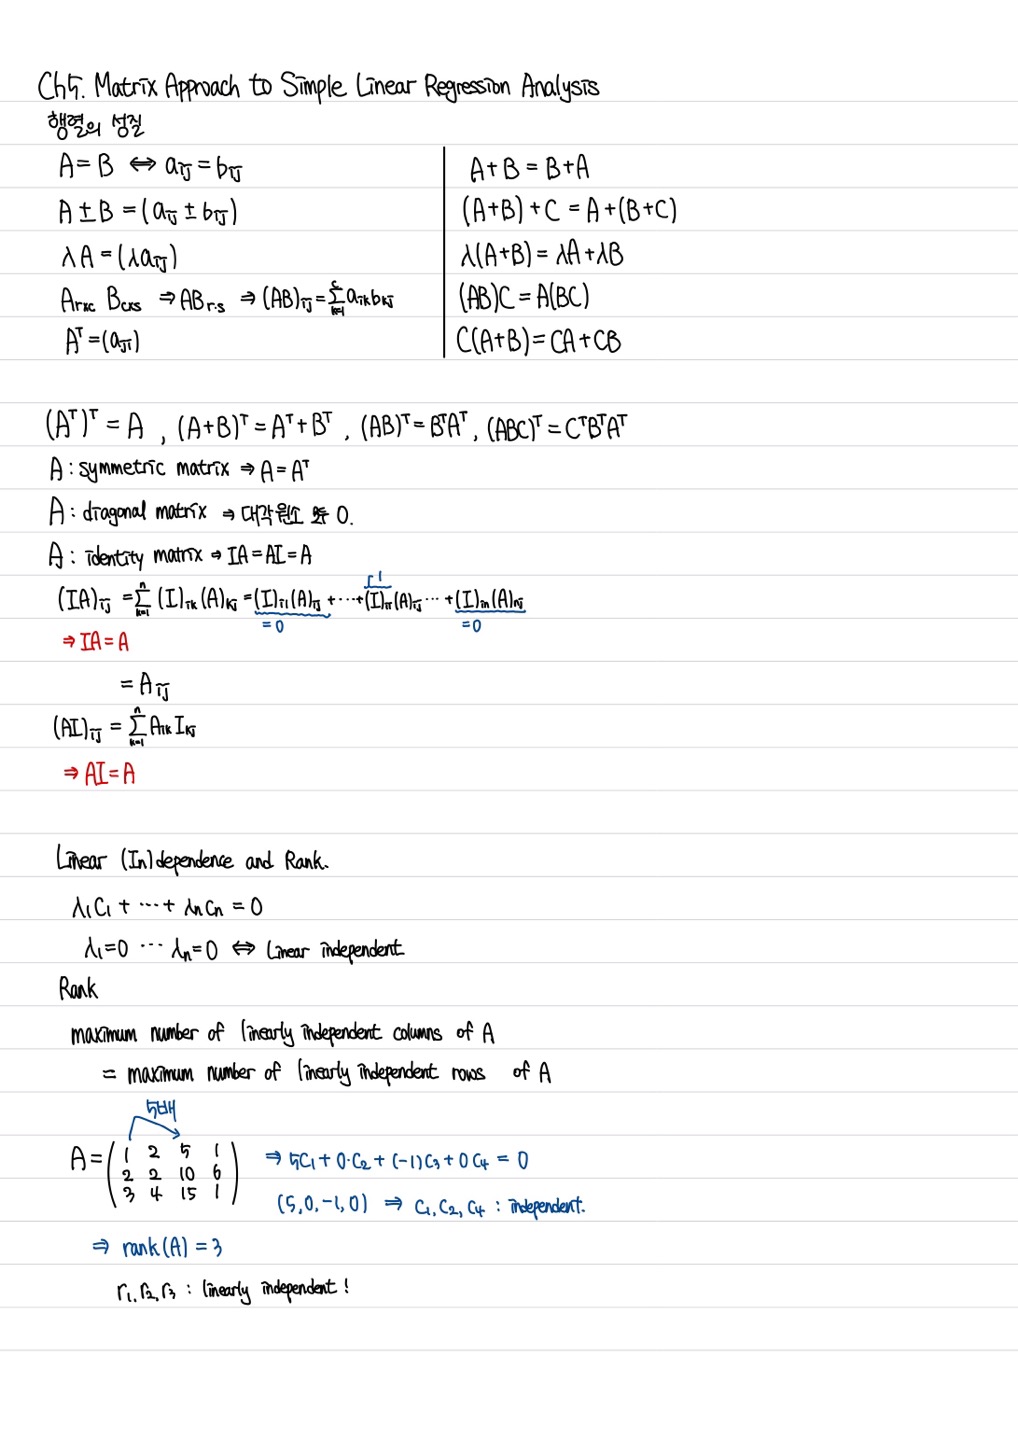 Ch5. Matrix Approach to Simple Linear Regression Analysis
행렬의 성질
A = B ⇔ aᵢⱼ = bᵢⱼ
A ± B = (aᵢⱼ ± bᵢⱼ)
λA = (λaᵢⱼ)
A_{r×c} B_{c×s} ⇒ AB_{r·s} ⇒ (AB)ᵢⱼ = Σ_{k=1}^{c} aᵢₖbₖⱼ
Aᵀ = (aⱼᵢ)
A + B = B + A
(A+B) + C = A + (B+C)
λ(A+B) = λA + λB
(AB)C = A(BC)
C(A+B) = CA + CB
(Aᵀ)ᵀ = A , (A+B)ᵀ = Aᵀ + Bᵀ , (AB)ᵀ = BᵀAᵀ , (ABC)ᵀ = CᵀBᵀAᵀ
A : symmetric matrix ⇒ A = Aᵀ
A : diagonal matrix ⇒ 대각원소 모두 0.
A : identity matrix ⇒ IA = AI = A
1
(IA)ᵢⱼ = Σ_{k=1}^{n} (I)ᵢₖ(A)ₖⱼ = (I)ᵢ₁(A)₁ⱼ + ⋯ + (I)ᵢᵢ(A)ᵢⱼ ⋯ + (I)ᵢₙ(A)ₙⱼ
= 0 = 0
⇒ IA = A
= Aᵢⱼ
(AI)ᵢⱼ = Σ_{k=1}^{n} Aᵢₖ Iₖⱼ
⇒ AI = A
Linear (In)dependence and Rank.
λ₁C₁ + ⋯ + λₙCₙ = 0
λ₁=0 ⋯ λₙ=0 ⇔ Linear independent
Rank
maximum number of linearly independent columns of A
= maximum number of linearly independent rows of A
5배
A = ( 1 2 5 1 ⇒ 5C₁ + 0·C₂ + (-1)C₃ + 0C₄ = 0
2 2 10 6
3 4 15 1 ) (5, 0, -1, 0) ⇒ C₁, C₂, C₄ : independent.
⇒ rank(A) = 3
r₁, r₂, r₃ : linearly independent !